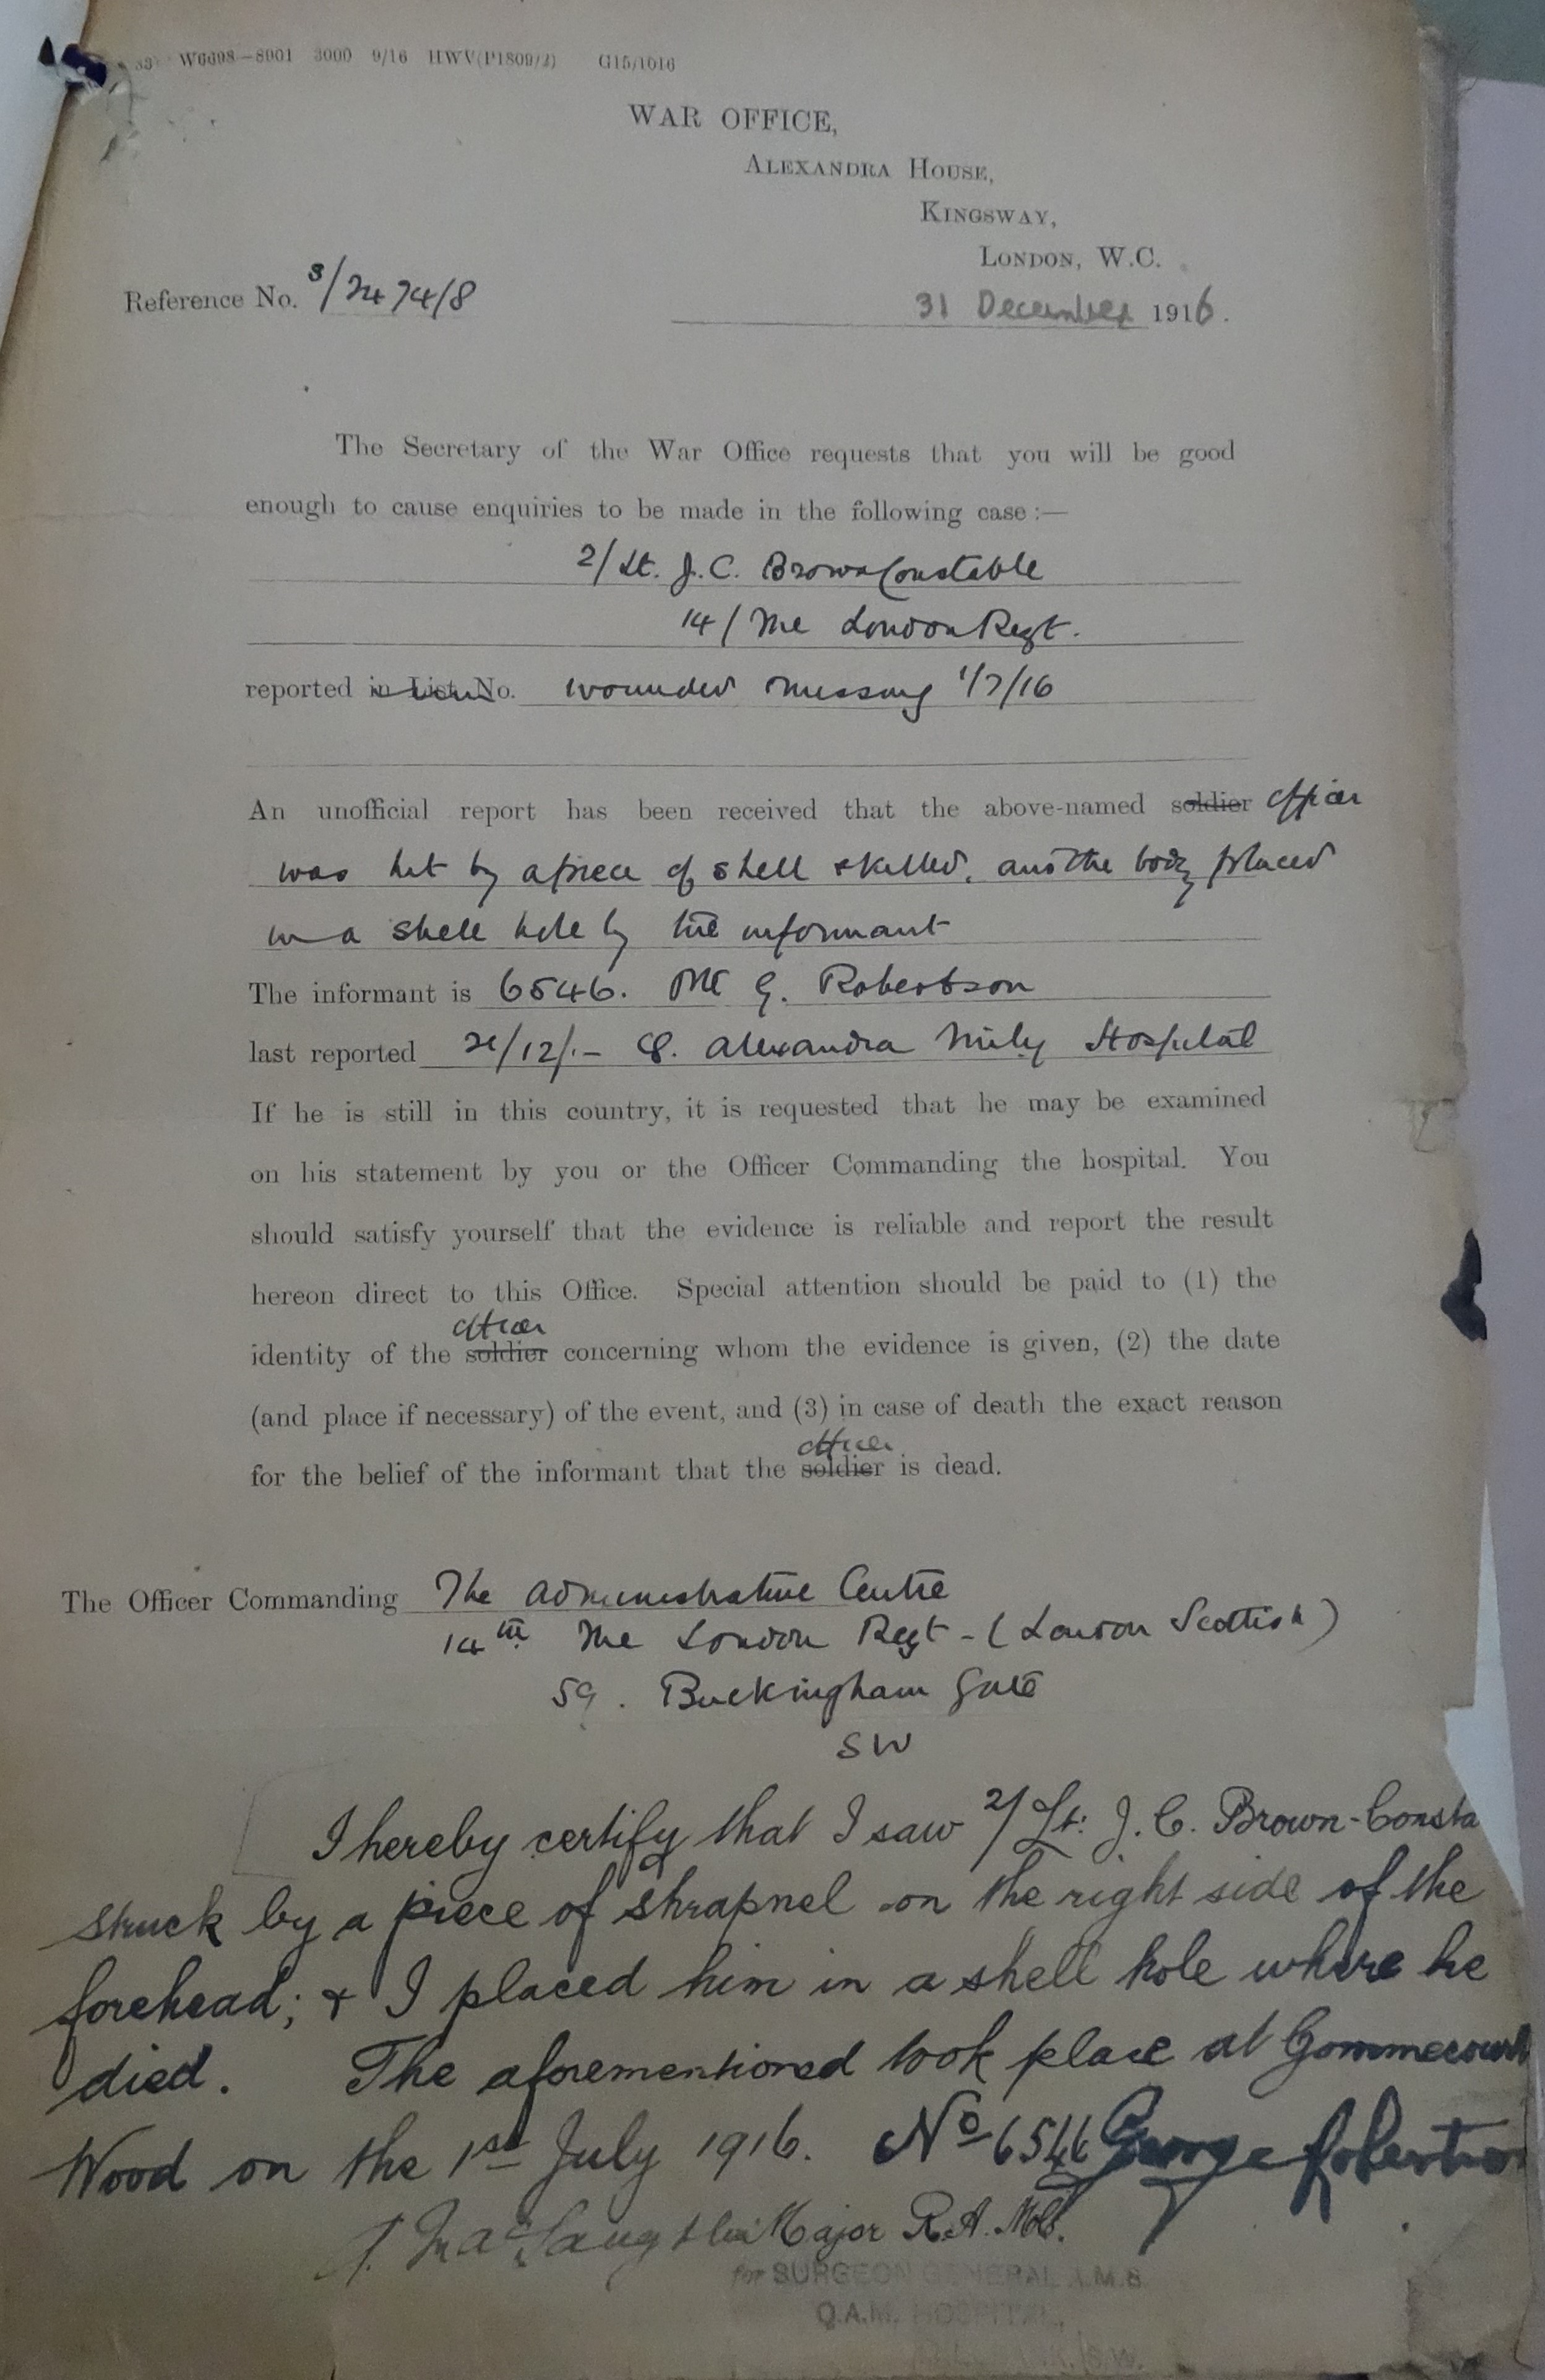 W6698—8901 3000 9/16 HWV(P1809/2) G15/1016
WAR OFFICE,
ALEXANDRA HOUSE,
KINGSWAY,
LONDON, W.C.
Reference No.
31 December 1916.
The Secretary of the War Office requests that you will be good
enough to cause enquiries to be made in the following case :—
2/Lt. J.C. Brown Constable
14/ The London Regt.
reported in List No. wounded missing 1/7/16
An unofficial report has been received that the above-named soldier officer
was hit by a piece of shell & killed, and the body placed
in a shell hole by the informant
The informant is 6546. Pte G. Robertson
last reported Q. Alexandra Mily Hospital
If he is still in this country, it is requested that he may be examined
on his statement by you or the Officer Commanding the hospital. You
should satisfy yourself that the evidence is reliable and report the result
hereon direct to this Office. Special attention should be paid to (1) the
officer
identity of the soldier concerning whom the evidence is given, (2) the date
(and place if necessary) of the event, and (3) in case of death the exact reason
officer
for the belief of the informant that the soldier is dead.
The Officer Commanding The Administrative Centre
14th The London Regt - (London Scottish)
59. Buckingham Gate
SW
I hereby certify that I saw 2/Lt: J. C. Brown-Consta
struck by a piece of shrapnel on the right side of the
forehead; & I placed him in a shell hole where he
died. The aforementioned took place at Gommecourt
Wood on the 1st July 1916. No 6546 George Robertson
Major R.A.M.C.
for SURGEON GENERAL A.M.S.
Q.A.M. HOSPITAL,